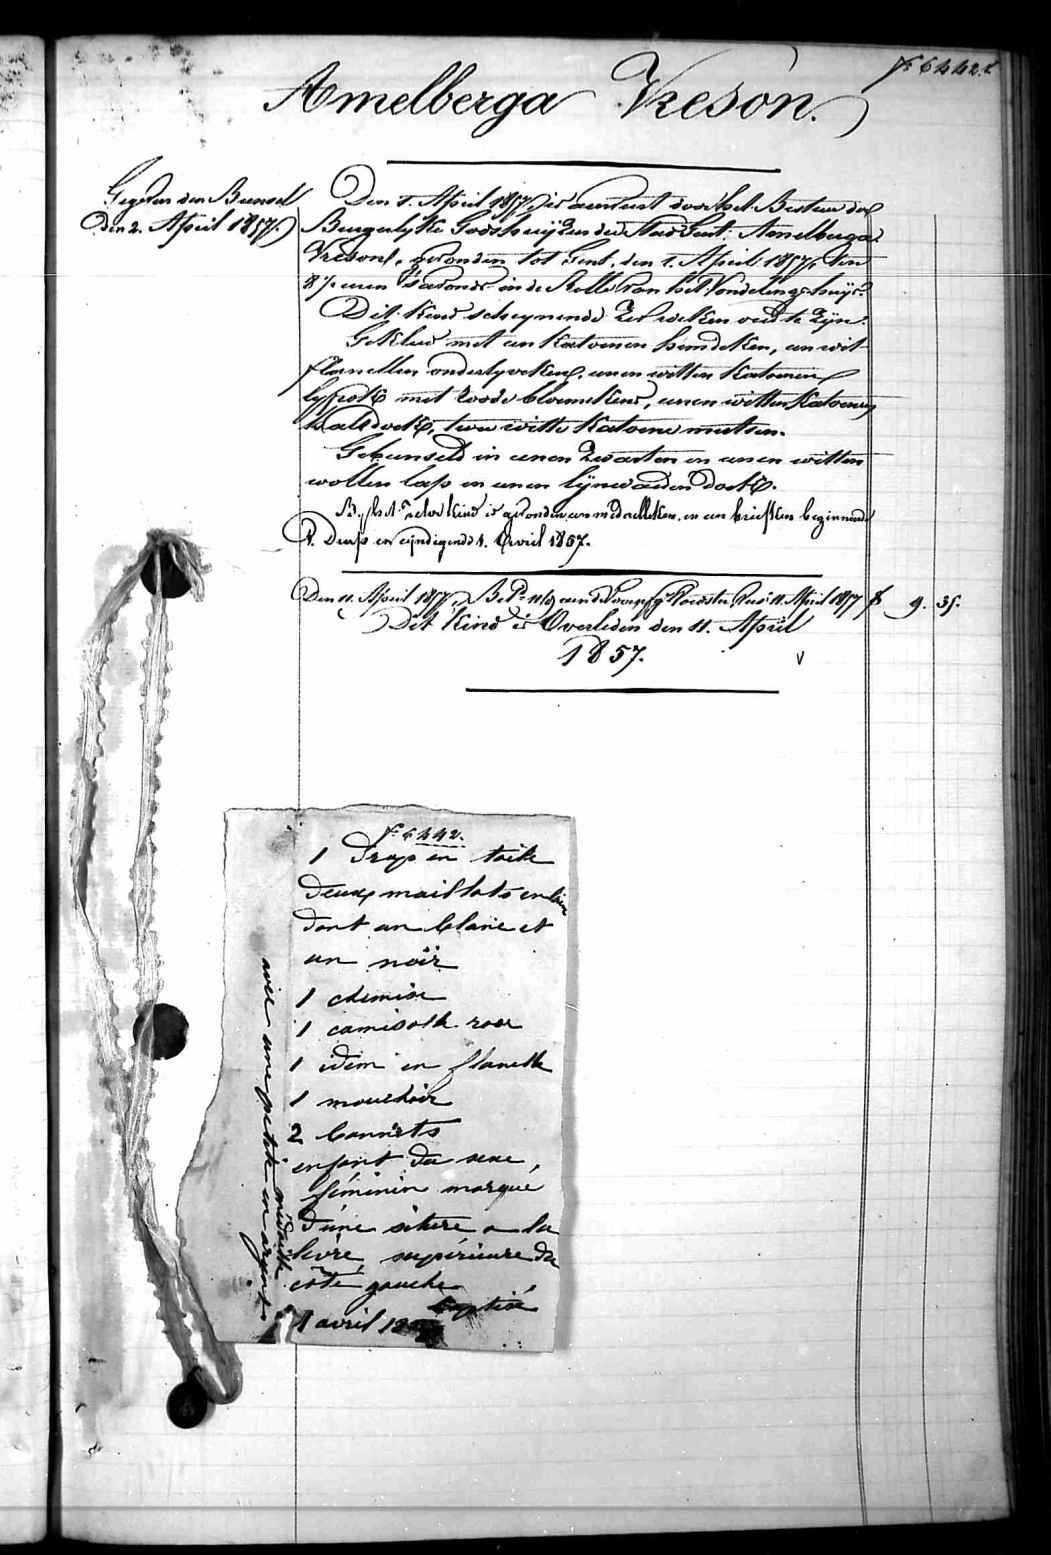 Nº 6442.
Amelberga Vreson.
Gegeven den Bussel
den 2. April 1857.
Den 1. April 1857, is aenveerd door het Bestuer der
Burgerlyke Godshuyzen der Stad Gent: Amelberga
Vreson, gevonden tot Gent, den 1. April 1857, ten
8½ uren 's avonds in de Rolle van het Vondelingshuys.
Dit kind scheynende zes weken oud te zyn.
Gekleed met een katoenen hemdeken, een wit
flanellen onderlyveken, eenen witten katoenen
lyfrok met roode bloemekens, eenen witten katoenen
halsdoek, twee witte katoene mutsen.
Gebunseld in eenen zwarten en eenen witten
wollen lap en eenen lynwaeden doek.
By het zelve kind is gevonden een medaelleken en een briefken beginnende
1. Drap en eyndigende 1. Avril 1857.
Den 11. April 1857, 11 April 1857 f 9. 35.
Dit Kind is Overleden den 11. April
1857.
Nº 6442.
1 Drap en toile
Deux maillots en laine
dont un blanc et
un noir
1 chemise
1 camisole rose
1 idem en flanelle
1 mouchoir
2 bonnets
enfant du sexe,
féminin marqué
d'une sature a la
levre supérieure du
côté gauche
baptisé
1 avril
avec une petite médaille
en argent